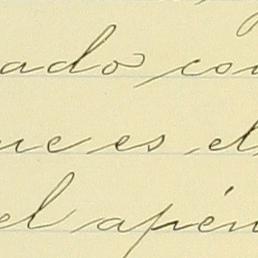 ado con
ue es el
el apén